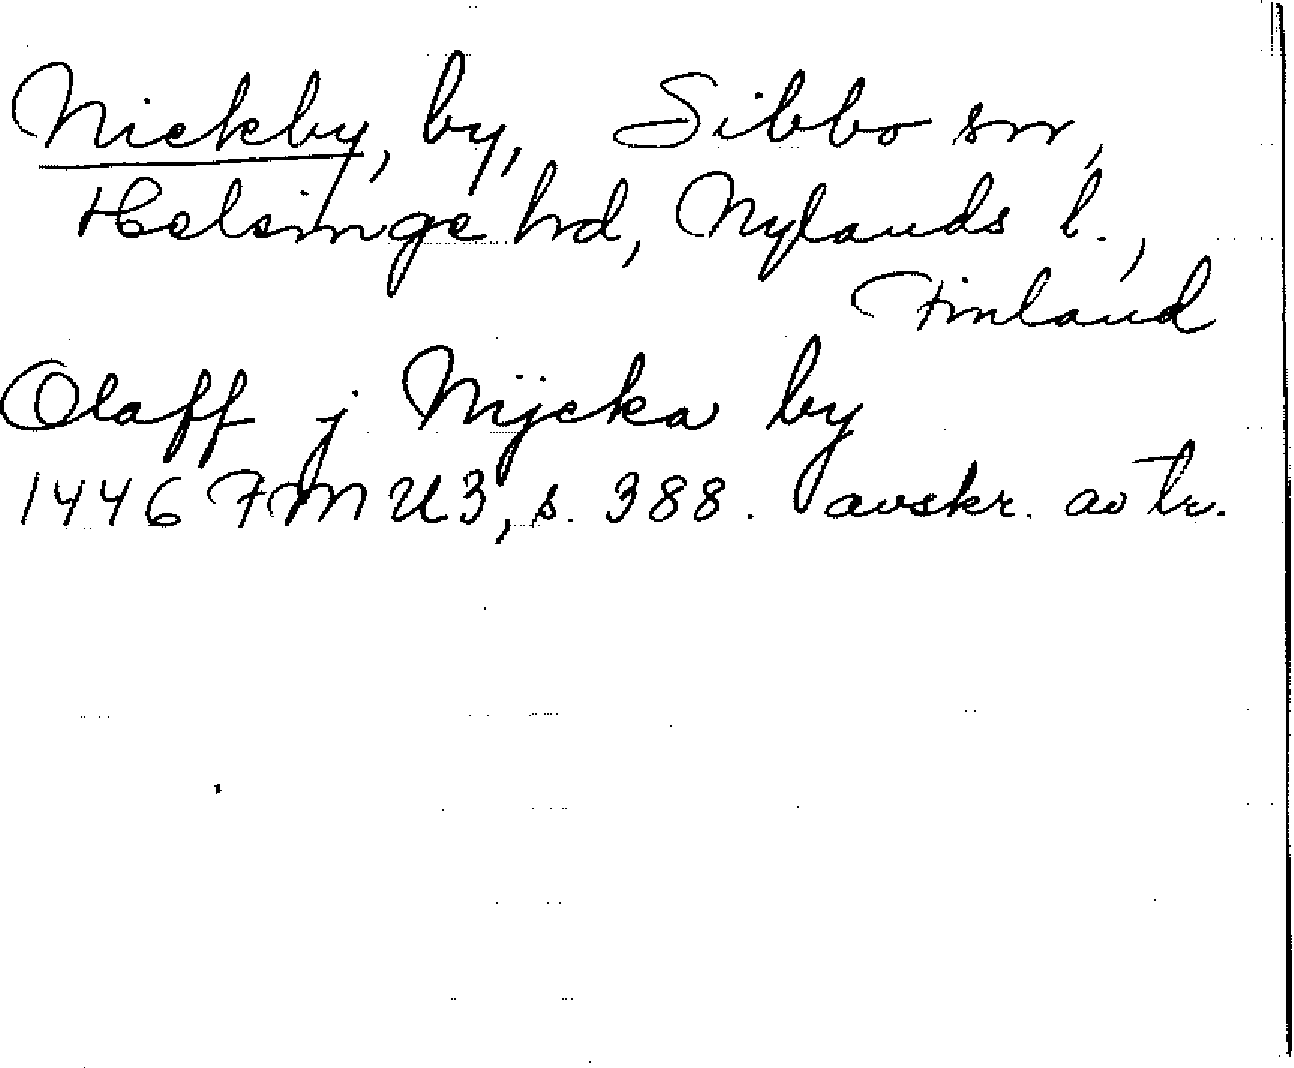 Nickby, by, Sibbo sn,
Helsinge hd, Nylands l.,
Finland
Olaff j Nijcka by
1446 FMU3, s. 388. avskr. av tr.